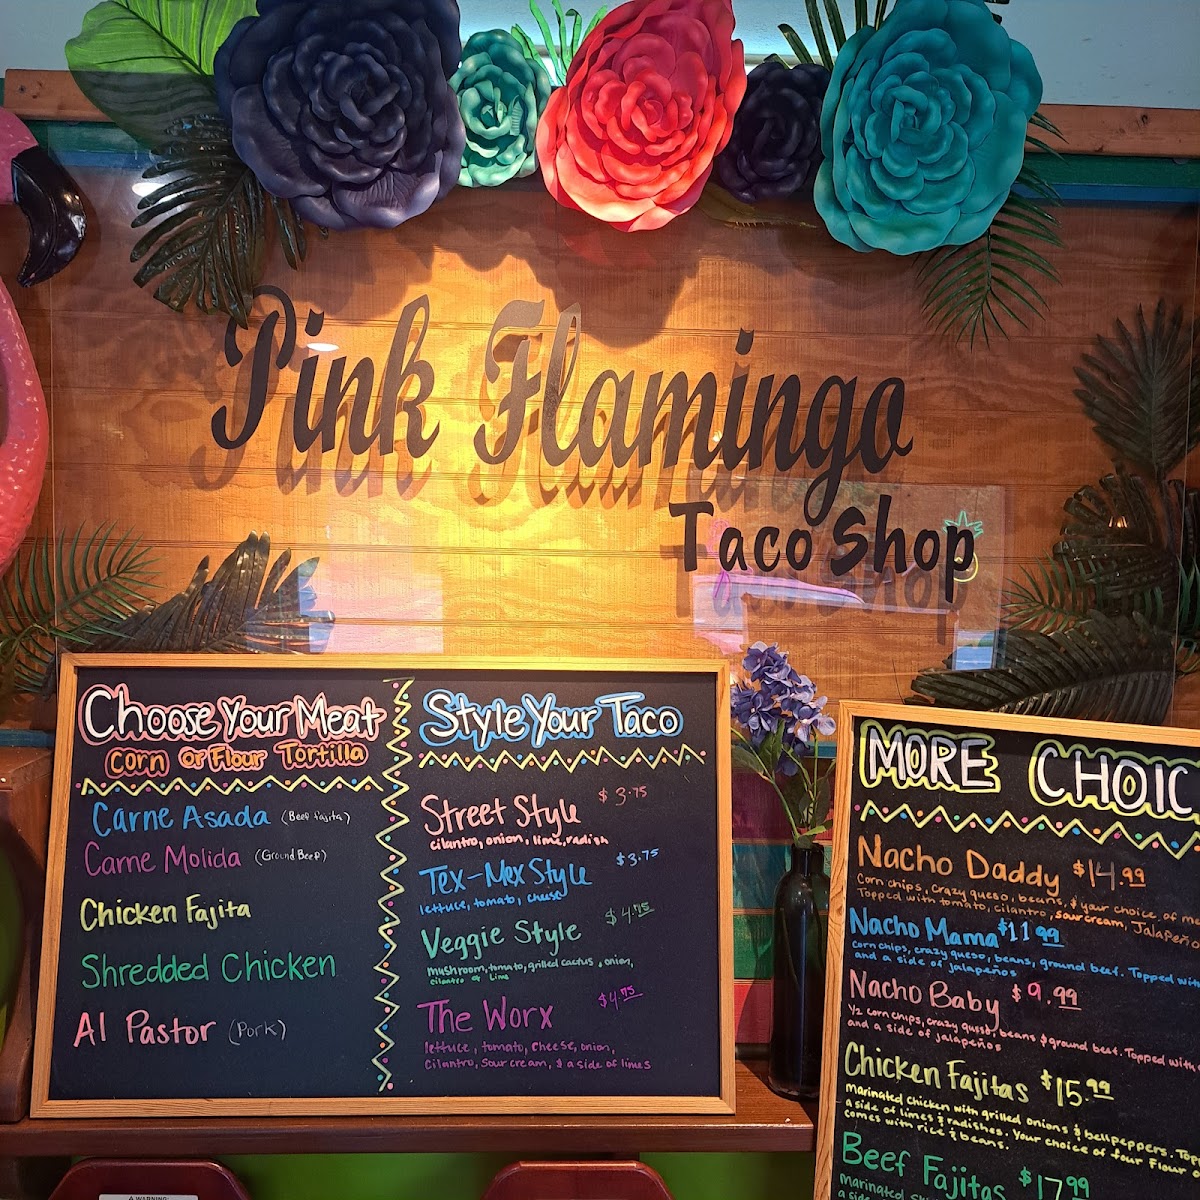 Pink Flamingo
Taco Shop
Choose Your Meat
Corn or Flour Tortilla
Carne Asada (Beef fajita)
Carne Molida (Ground Beef)
Chicken Fajita
Shredded Chicken
Al Pastor (Pork)
Style Your Taco
Street Style $3.75
cilantro, onion, lime, radish
Tex-Mex Style $3.75
lettuce, tomato, cheese
Veggie Style $4.75
mushroom, tomato, grilled cactus, onion,
cilantro & lime
The Worx $4.75
lettuce, tomato, cheese, onion,
cilantro, sour cream, & a side of limes
MORE CHOIC
Nacho Daddy $14.99
Corn chips, crazy queso, beans, & your choice of
Topped with tomato, cilantro, sour cream, Jalapeño
Nacho Mama $11.99
corn chips, crazy queso, beans, ground beef. Topped with
and a side of jalapeños
Nacho Baby $9.99
1/2 corn chips, crazy queso, beans & ground beef. Topped with
and a side of jalapeños
Chicken Fajitas $15.99
Marinated chicken with grilled onions & bellpeppers. Top
a side of limes & radishes. Your choice of four Flour
comes with rice & beans.
Beef Fajitas $17.99
Marinated
a side
WARNING: